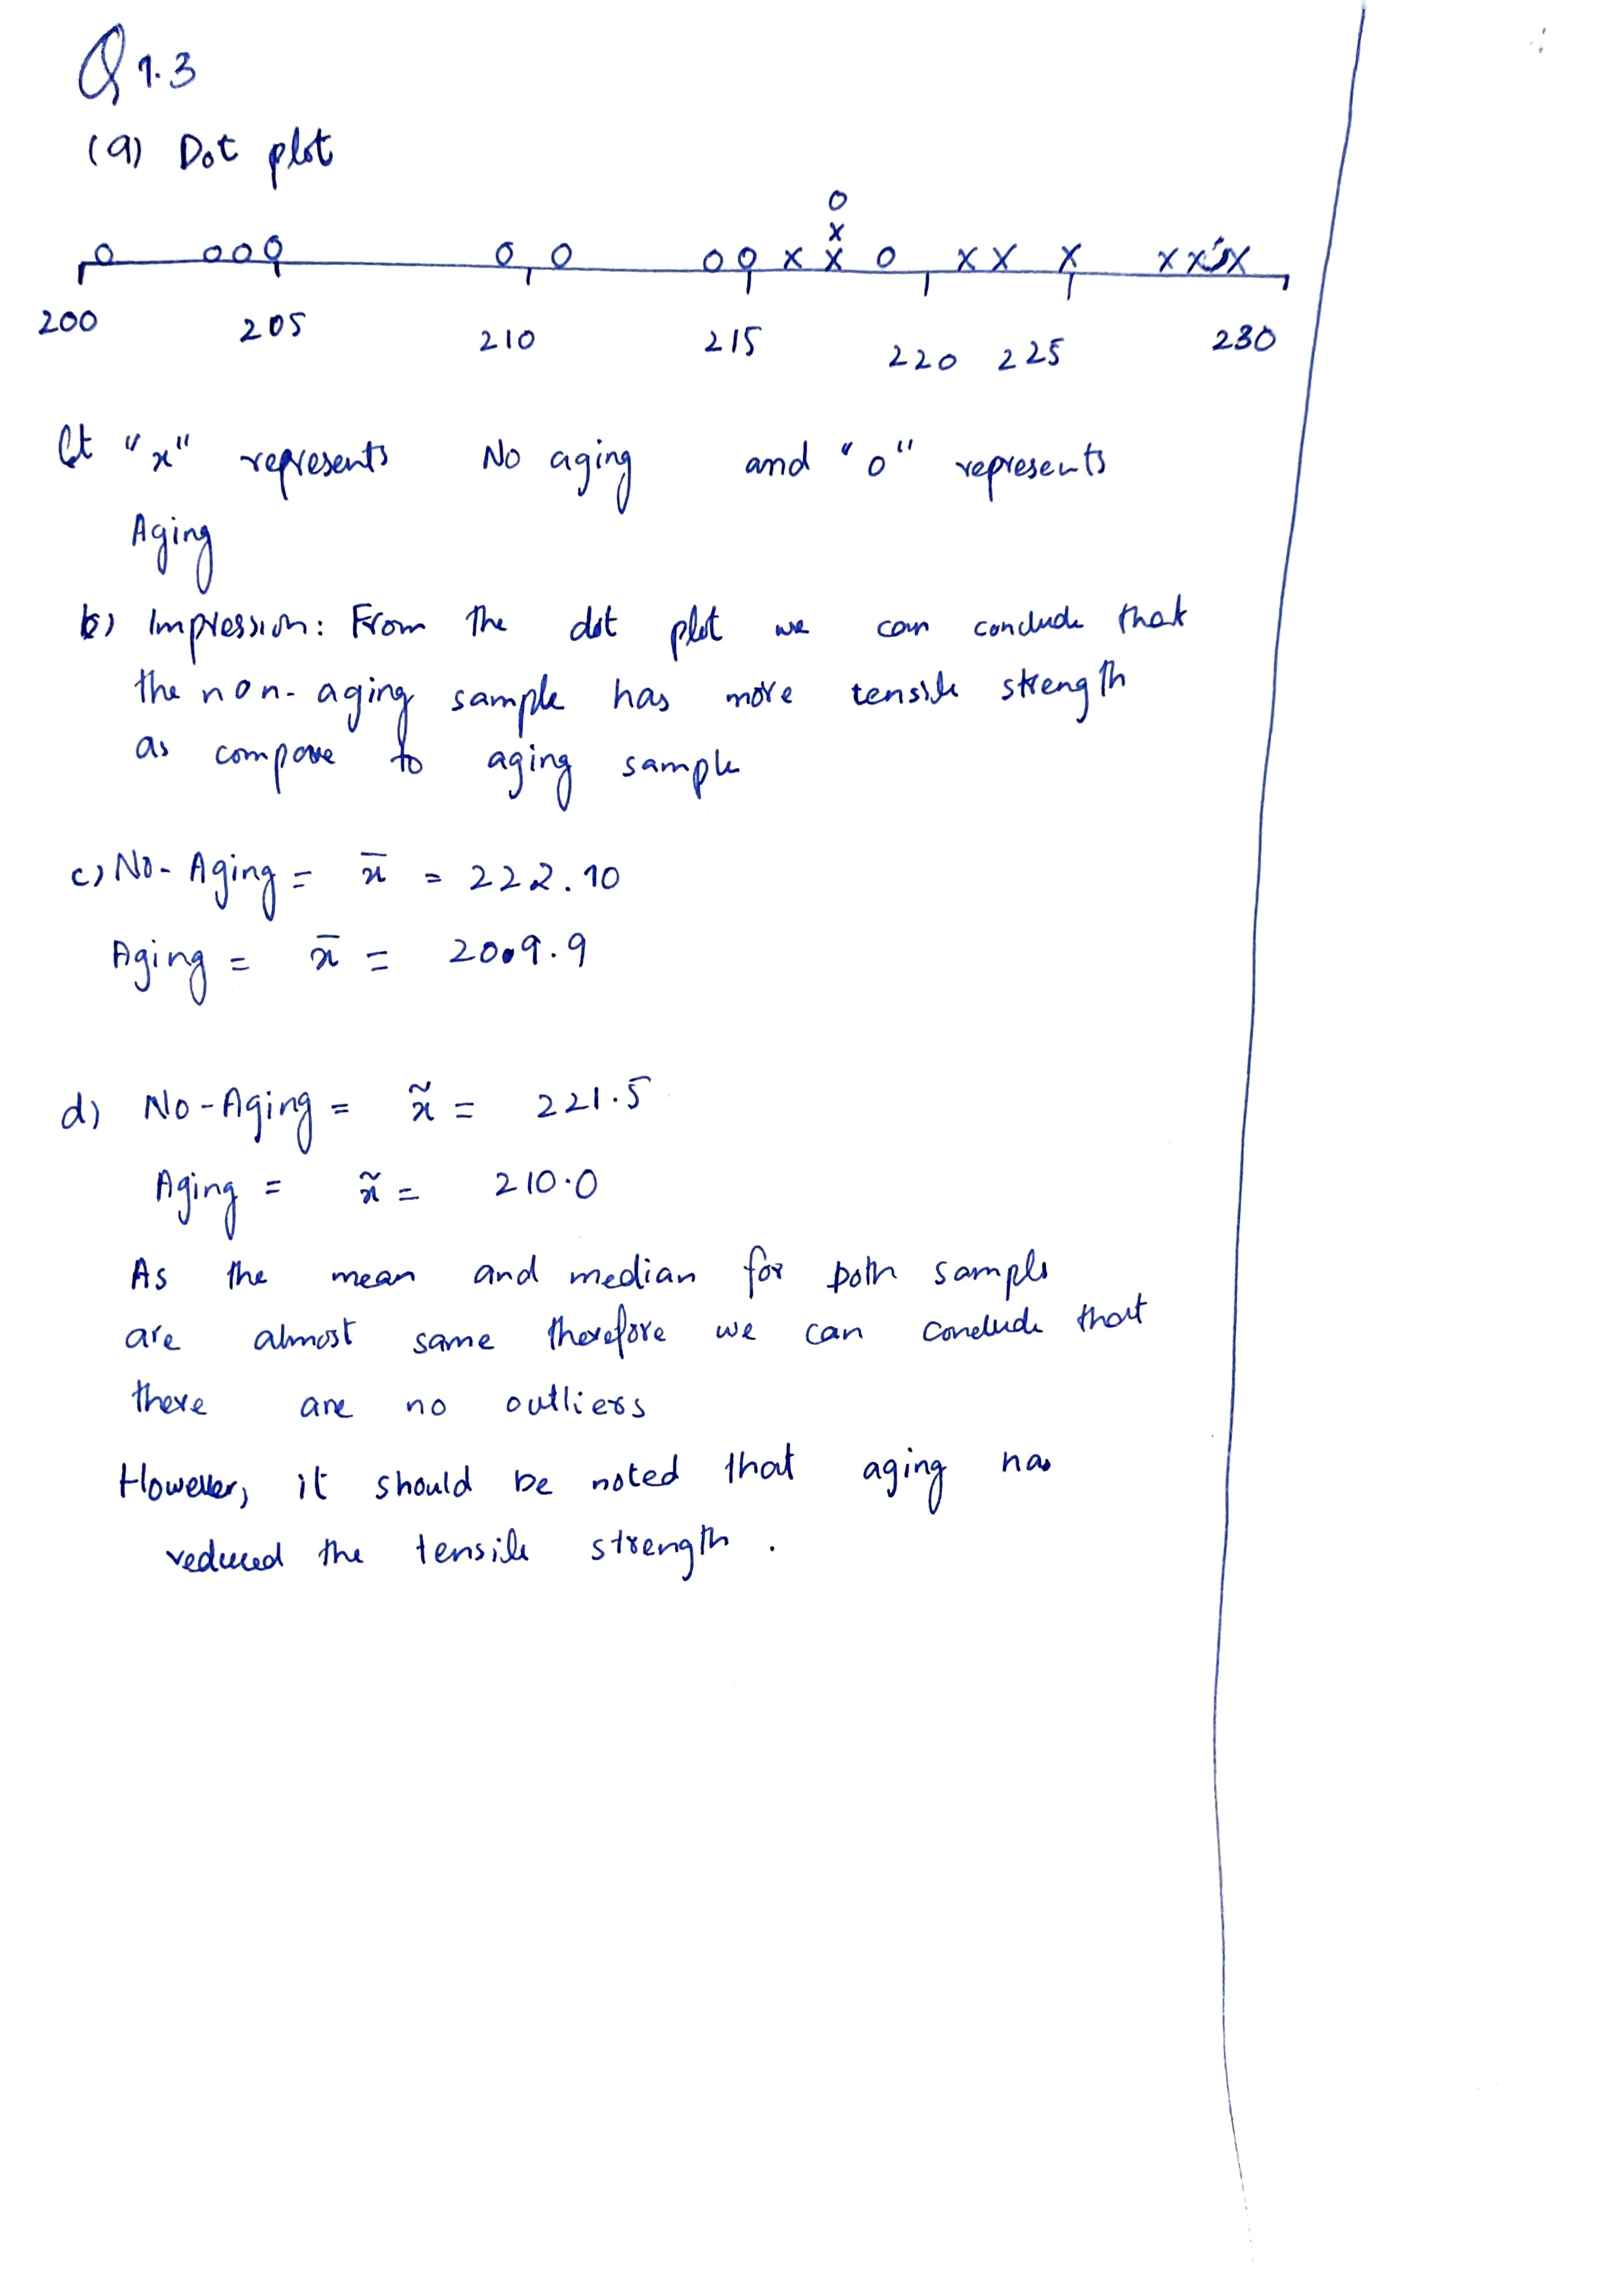 Q 1.3
(a) Dot plot
o
x
o o o o o o o o x x o x x x x x x
200 205 210 215 220 225 230
let "x" represents No aging and "o" represents
Aging
b) Impression: From the dot plot we can conclude that
the non-aging sample has more tensile strength
as compare to aging sample
c) No-Aging = x̄ = 222.10
Aging = x̄ = 209.9
d) No-Aging = x̃ = 221.5
Aging = x̃ = 210.0
As the mean and median for both sample
are almost same therefore we can conclude that
there are no outliers
However, it should be noted that aging has
reduced the tensile strength.